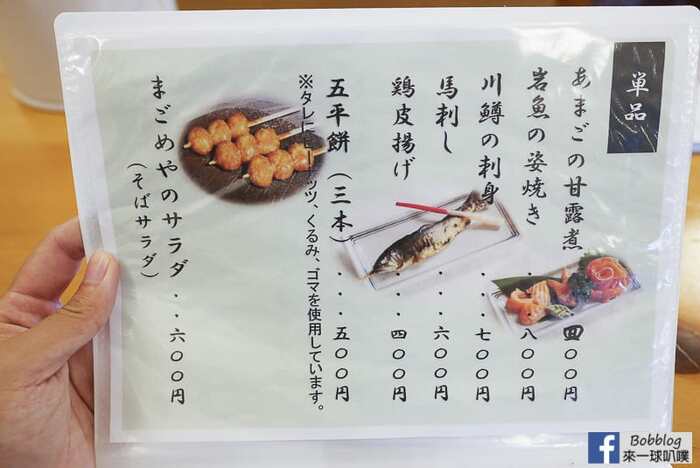 単品
あまごの甘露煮・・・四〇〇円
岩魚の姿焼き・・・八〇〇円
川鱒の刺身・・・七〇〇円
馬刺し・・・六〇〇円
鶏皮揚げ・・・四〇〇円
五平餅（三本）・・・・五〇〇円
※タレにピーナッツ、くるみ、ゴマを使用しています。
まごめやのサラダ・・六〇〇円
（そばサラダ）
Bobblog
來一球叭噗